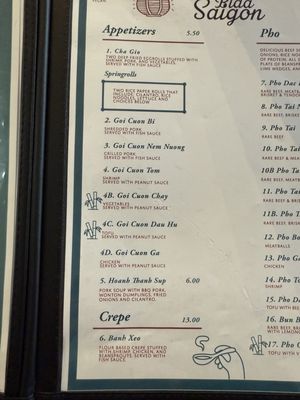 VEGAN
Saigon
Appetizers 5.50
1. Cha Gio
TWO DEEP FRIED EGGROLLS STUFFED WITH
SHRIMP, PORK, AND VEGETABLES.
SERVED WITH FISH SAUCE
Springrolls
TWO RICE PAPER ROLLS THAT
INCLUDE: CILANTRO, RICE
NOODLES, LETTUCE AND
CHOICES BELOW
2. Goi Cuon Bi
SHREDDED PORK
SERVED WITH FISH SAUCE
3. Goi Cuon Nem Nuong
GRILLED PORK
SERVED WITH FISH SAUCE
4. Goi Cuon Tom
SHRIMP
SERVED WITH PEANUT SAUCE
4B. Goi Cuon Chay
VEGETABLES
SERVED WITH PEANUT SAUCE
4C. Goi Cuon Dau Hu
TOFU
SERVED WITH PEANUT SAUCE
4D. Goi Cuon Ga
CHICKEN
SERVED WITH PEANUT SAUCE
5. Hoanh Thanh Sup 6.00
PORK SOUP WITH BBQ PORK,
WONTON DUMPLINGS, FRIED
ONIONS AND CILANTRO.
Crepe 13.00
6. Banh Xeo
FLOUR BASED CREPE STUFFED
WITH SHRIMP, CHICKEN, AND
BEANSPROUTS. SERVED WITH
FISH SAUCE
Pho
DELICIOUS BEEF
ONIONS, RICE
OF PEPPER AND
PLATE OF BEAN
LIME WEDGES, AND
7. Pho Dac
RARE BEEF, MEAT
BRISKET & TENDON
8. Pho Tai
RARE BEEF, BRISK
9. Pho Tai
RARE BEEF
10. Pho Tai
RARE BEEF & MEAT
10B Pho Tai
RARE BEEF, MEAT
11. Pho Ta
RARE BEEF &
11B. Pho
RARE BEEF, BRISK
12. Pho Bo
MEATBALLS
13. Pho Ga
CHICKEN
14. Pho To
SHRIMP
15. Pho Da
TOFU WITH BEE
16. Bun B
RARE BEEF
WITH LEMON
17. Pho C
TOFU WITH V